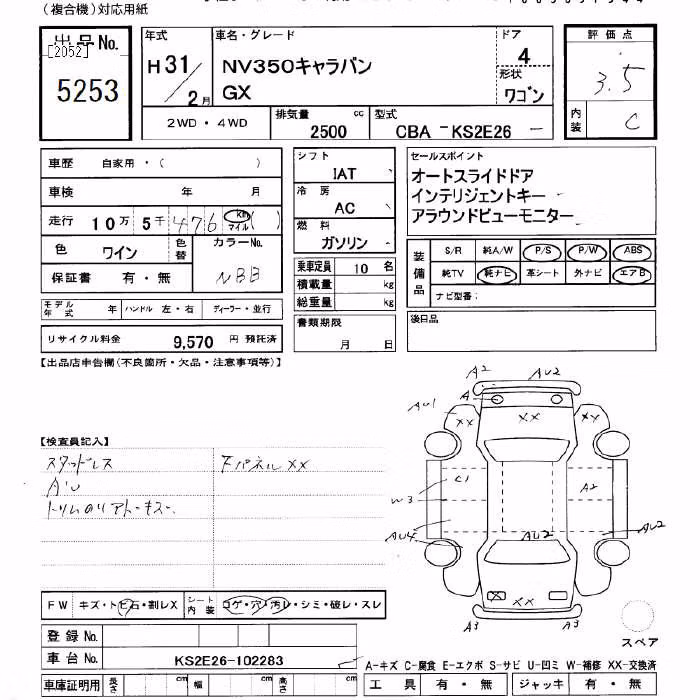 (複合機)対応用紙
出品No.
[2052]
5253
年式
H31/2月
車名・グレード
NV350キャラバン
GX
ドア
4
形状
ワゴン
評価点
3.5
内装
C
2WD・4WD
排気量
2500 cc
型式
CBA -KS2E26 -
車歴 自家用・( )
車検 年 月
走行 10万 5千 476 km マイル ( )
色 ワイン 色替 カラーNo. NBB
保証書 有・無
モデル年式 年 ハンドル 左・右 ディーラー・並行
リサイクル料金 9,570 円 預託済
シフト
IAT
冷房
AC
燃料
ガソリン
乗車定員 10 名
積載量 kg
総重量 kg
書類期限
月 日
セールスポイント
オートスライドドア
インテリジェントキー
アラウンドビューモニター
装備品
S/R 純A/W P/S P/W ABS
純TV 純ナビ 革シート 外ナビ エアB
ナビ型番:
後日品
【出品店申告欄(不良箇所・欠品・注意事項等)】
【検査員記入】
スタッドレス
AU
トリムのリアトーキズ
下パネルXX
A2 AU2
A
AU1 XX XX XX
C1 A2
W3
AU4 AU2 AU2
XX XX
A3 A3
スペア
FW キズ・トビ石・割レX シート内装 コゲ・穴・汚レ・シミ・破レ・スレ
登録No.
車台No. KS2E26-102283
A-キズ C-腐食 E-エクボ S-サビ U-凹ミ W-補修 XX-交換済
車庫証明用 長さ cm 幅 cm 高さ cm
工具 有・無 ジャッキ 有・無